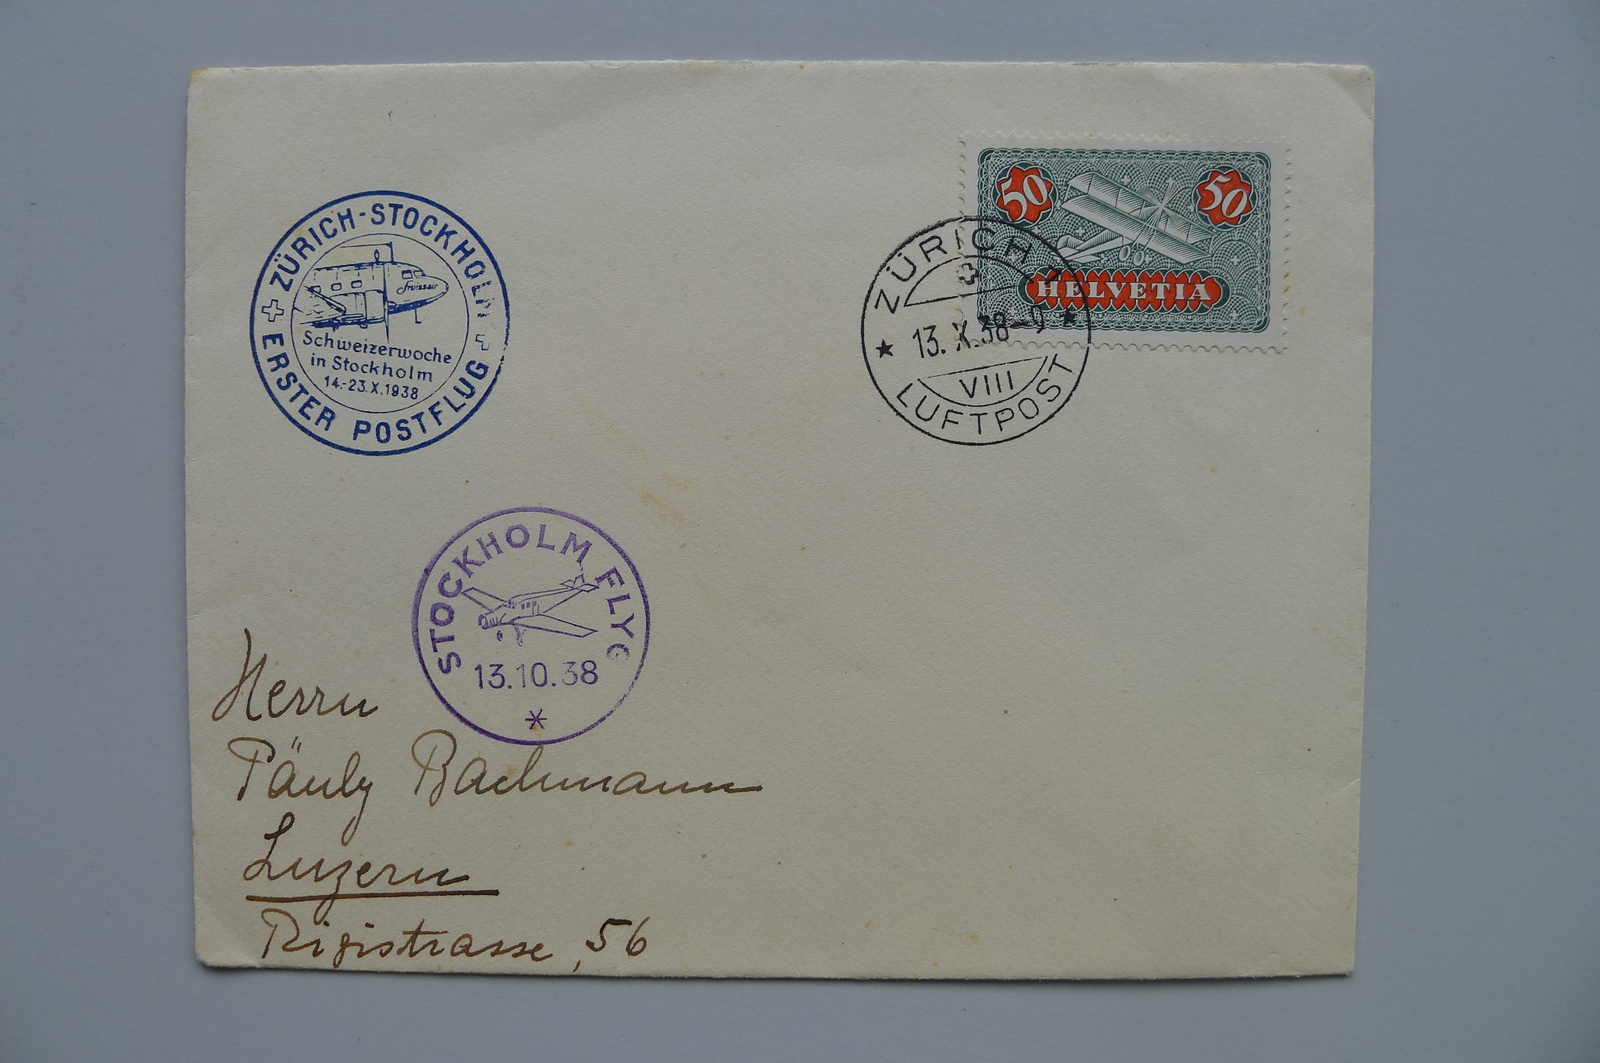 ZÜRICH-STOCKHOLM
Swissair
Schweizerwoche
in Stockholm
14.-23.X.1938
ERSTER POSTFLUG
50 50
HELVETIA
ZÜRICH
13.X.38-9
VIII
LUFTPOST
STOCKHOLM FLYG
13.10.38
Herrn
Päuly Bachmann
Luzern
Rigistrasse, 56